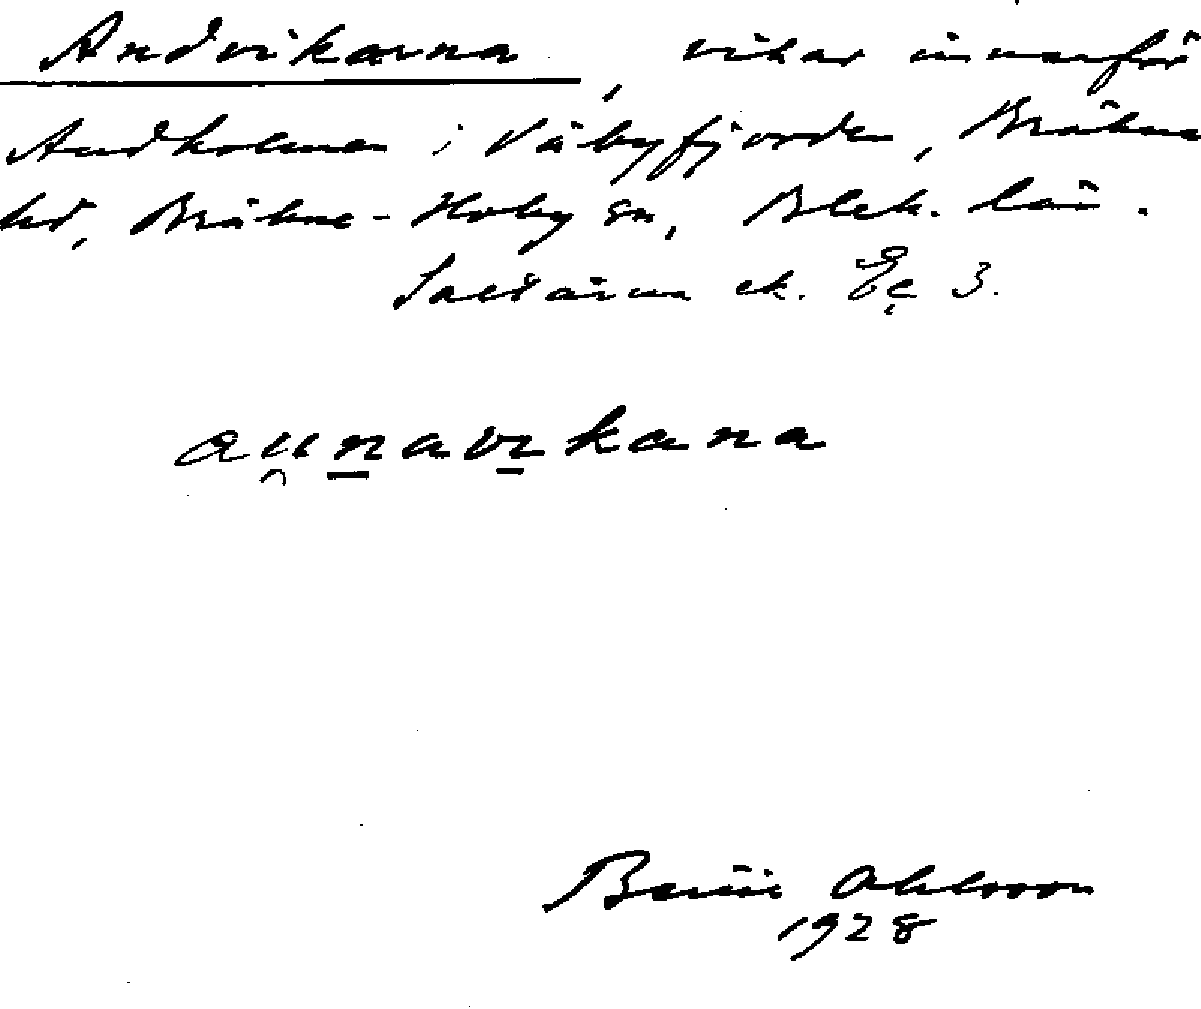 Andvikarna, vikar innanför
Andholmen i Väbyfjorden, Bräkne
hd, Bräkne-Hoby sn, Blek. län.
Saltärna ek. Ec 3.
aunavikana
Ohlsson
1928